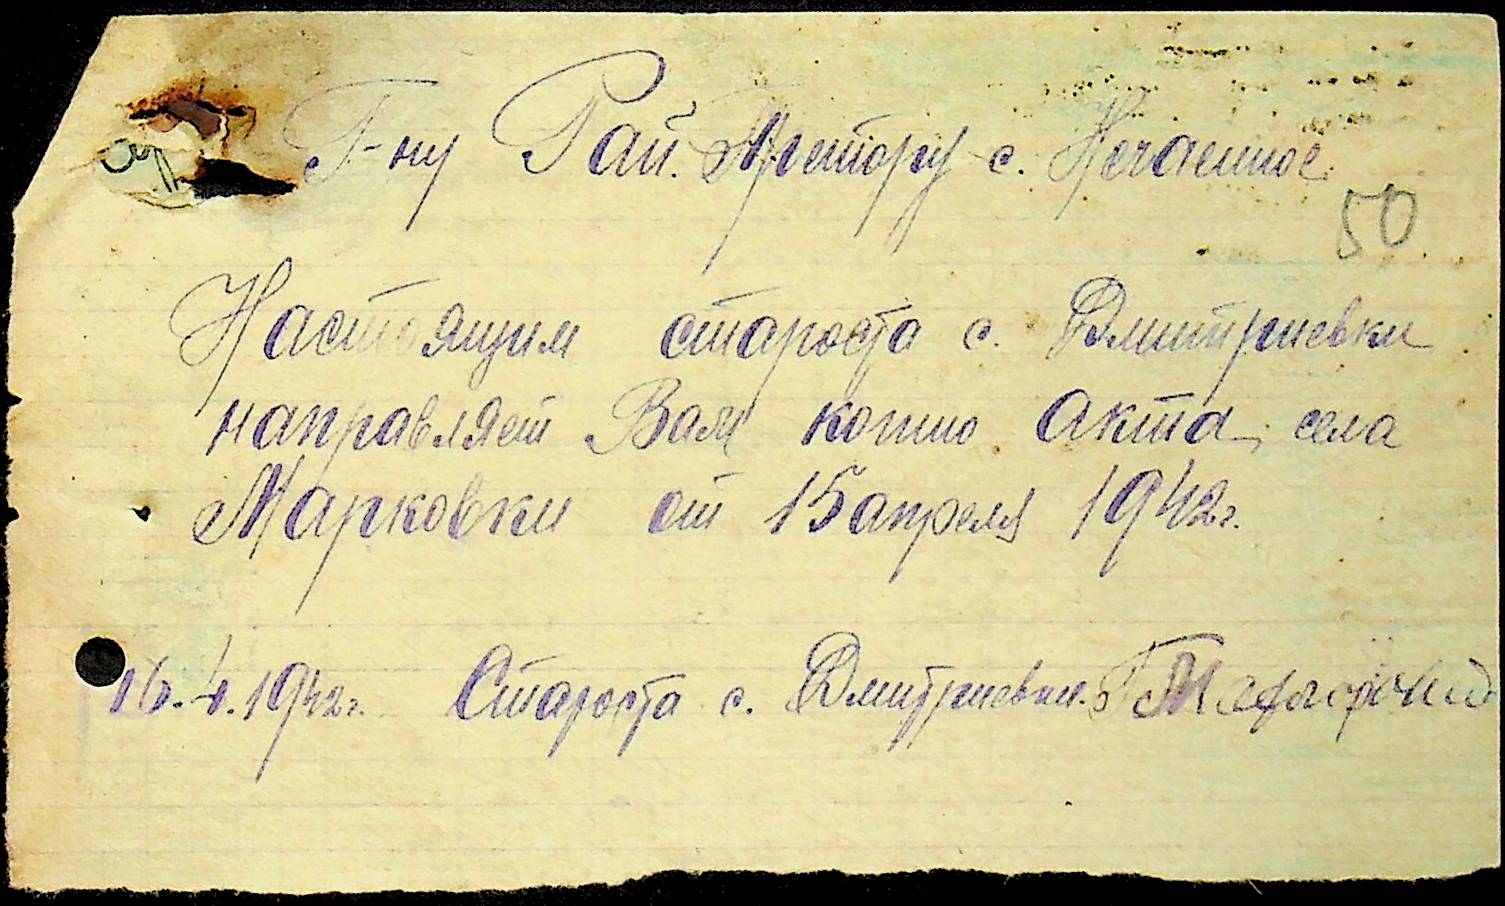 Г-ну Рай. Претору с. Нечаенное
50
Настоящим староста с. Дмитриевки
направляет Вам копию акта села
Марковки от 15 апреля 1942 г.
16.4.1942 г. Староста с. Дмитриевки.